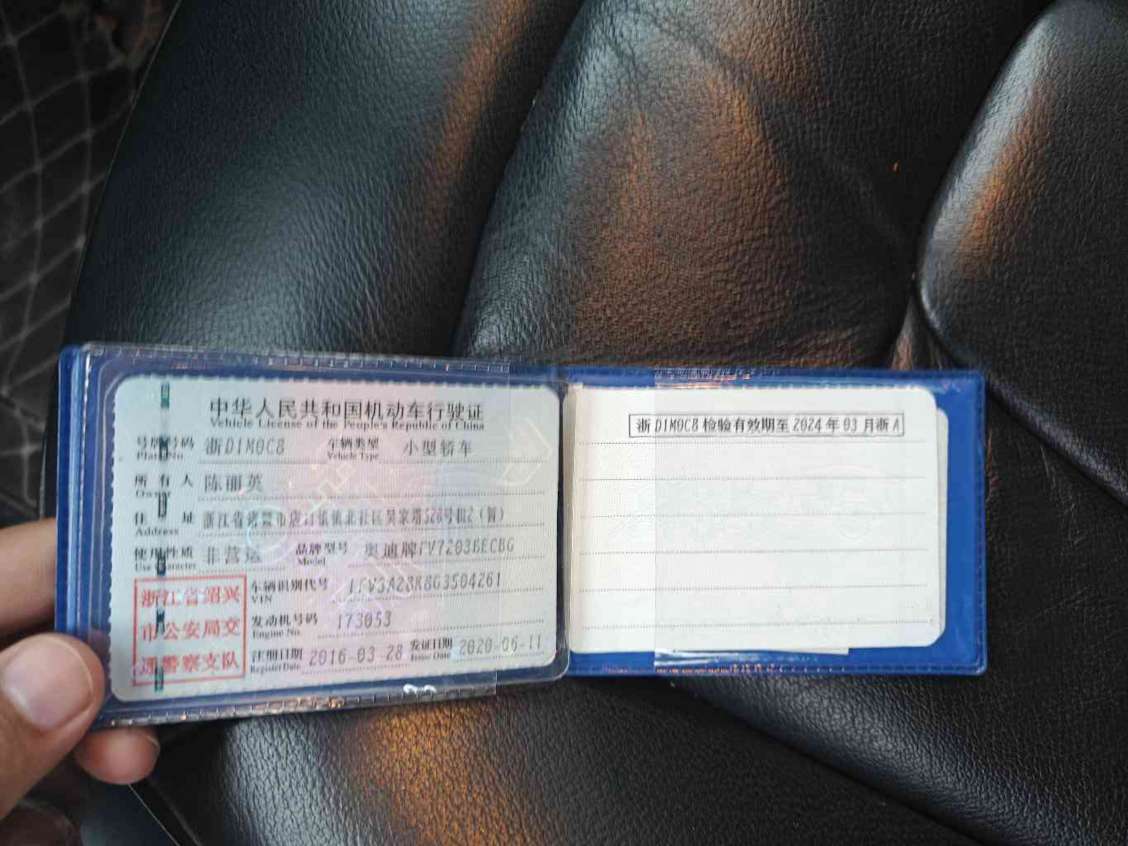 中华人民共和国机动车行驶证
Vehicle License of the People's Republic of China
号牌号码 浙D1M0C8 车辆类型 小型轿车
Plate No. Vehicle Type
所有人 陈丽英
Owner
住址 浙江省诸暨市店口镇镇北社区吴家塔326号
Address
使用性质 非营运 品牌型号 奥迪牌FV7203BECBG
Use Character Model
浙江省绍兴
市公安局交
通警察支队
车辆识别代号 LFV3A28R8G3504261
VIN
发动机号码 173053
Engine No.
注册日期 2016-03-28 发证日期 2020-06-11
Register Date Issue Date
浙D1M0C8检验有效期至2024年03月浙A